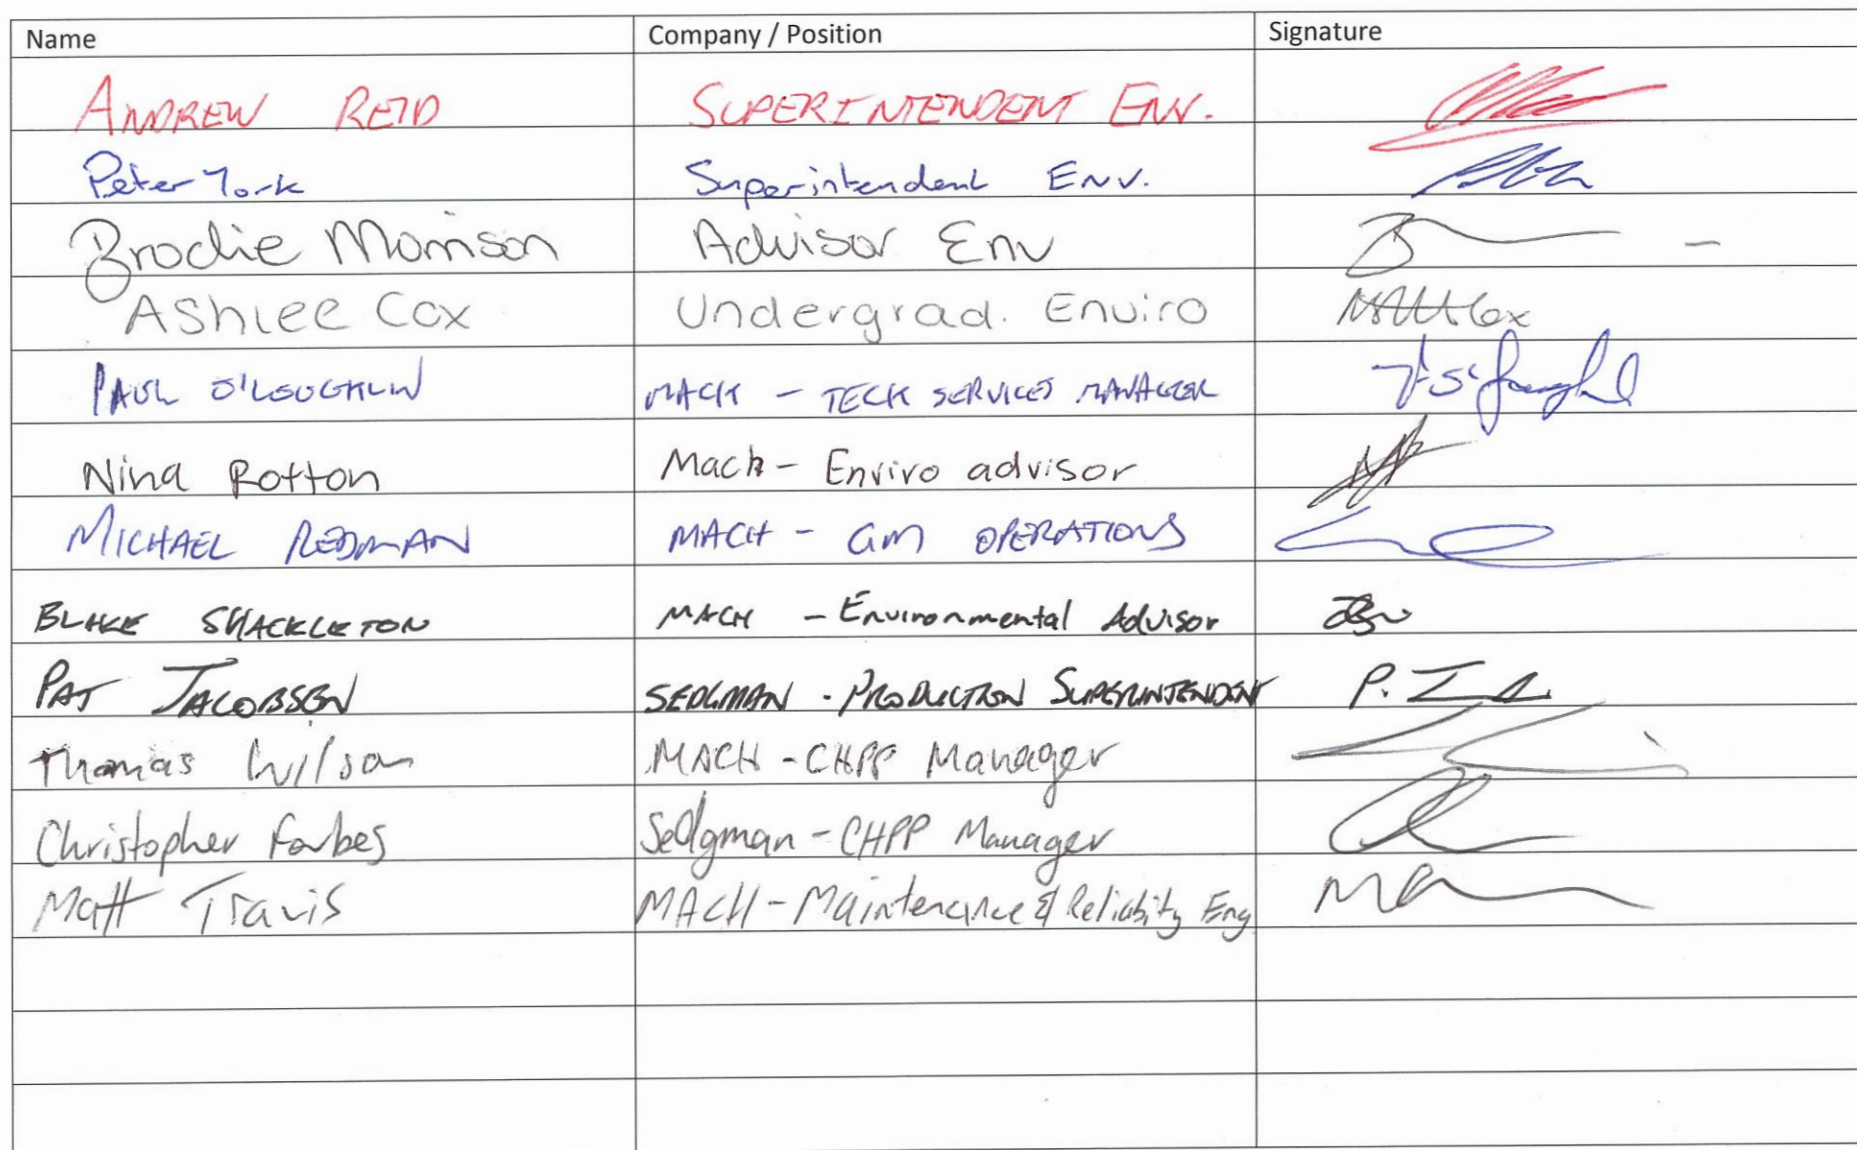 Name Company / Position Signature
ANDREW REID SUPERINTENDENT ENV.
Peter York Superintendent Env.
Brodie Morrison Advisor Env
Ashlee Cox Undergrad. Enviro
PAUL O'LOUGHLIN MACH - TECH SERVICES MANAGER
Nina Rotton Mach - Enviro advisor
MICHAEL REDMAN MACH - GM OPERATIONS
BLAKE SHACKLETON MACH - Environmental Advisor
PAT JACOBSEN SEDGMAN - PRODUCTION SUPERINTENDENT
Thomas Wilson MACH - CHPP Manager
Christopher Forbes Sedgman - CHPP Manager
Matt Travis MACH - Maintenance & Reliabity Eng